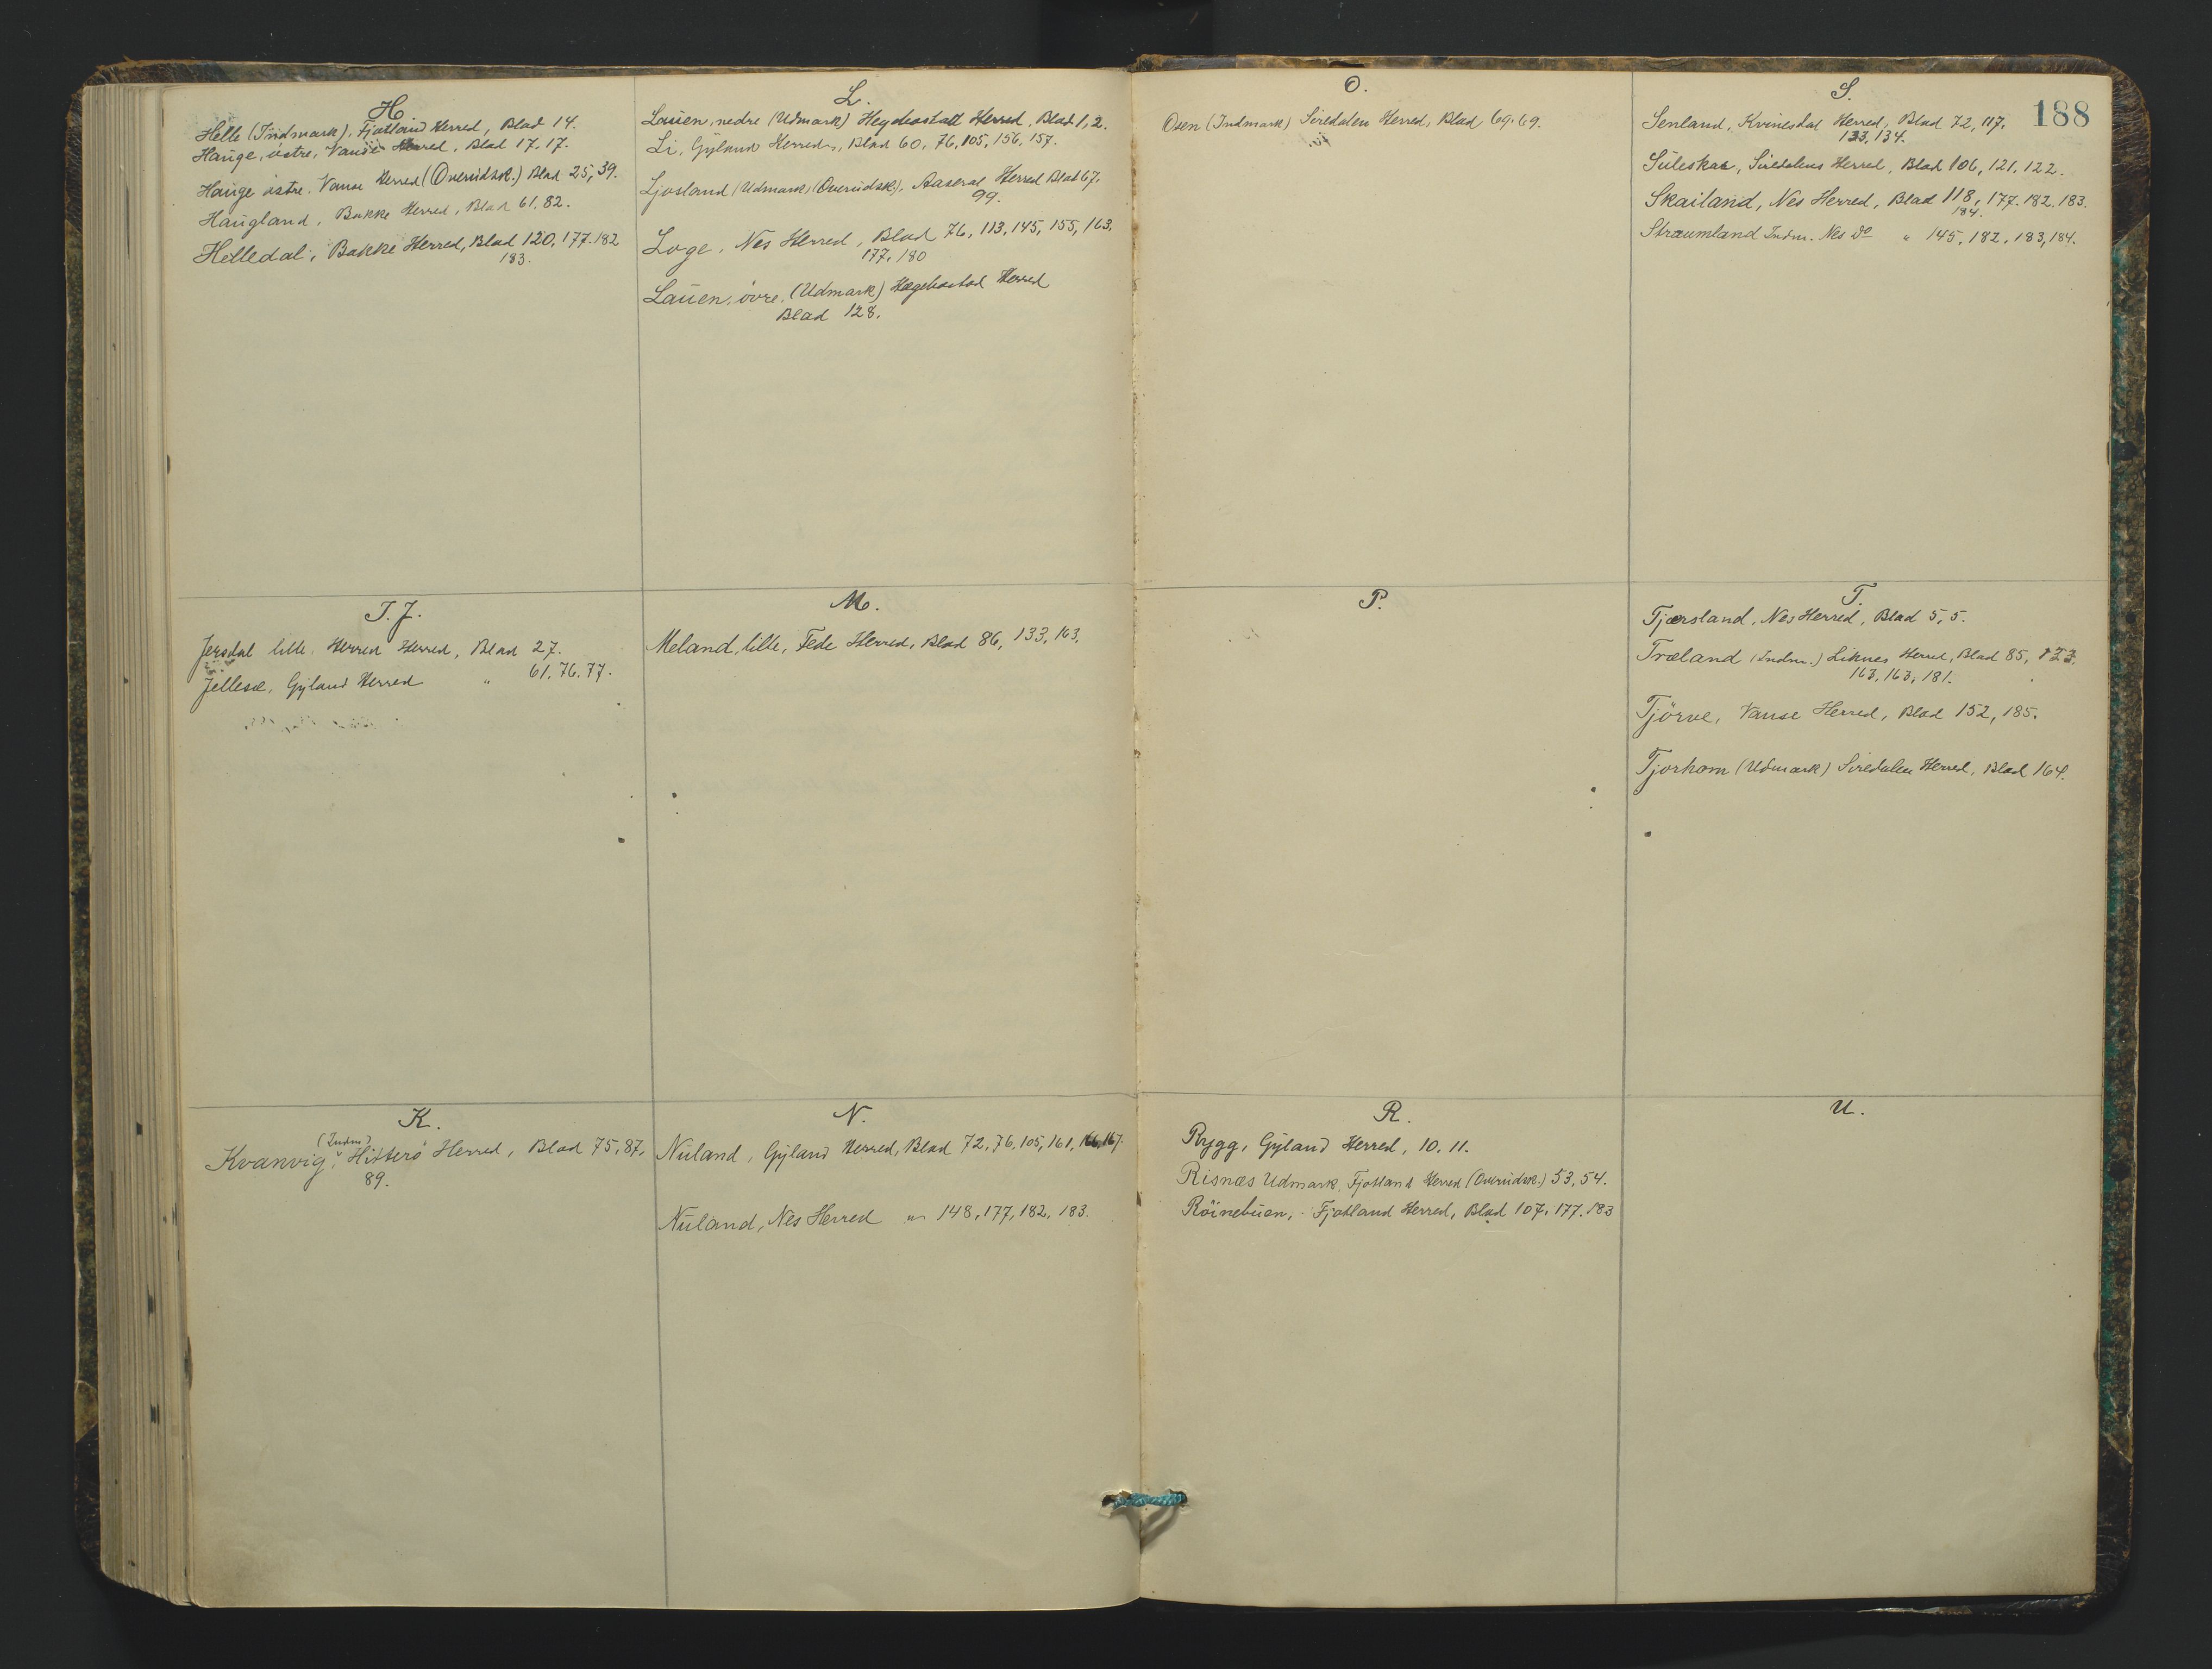 H
Helle (Indmark), Fjotland Herred, Blad 14.
Hauge, östre, Vanse Herred, Blad 17, 17.
Hauge östre, Vanse Herred (Overudsk.) Blad 25, 39.
Haugland, Bakke Herred, Blad 61, 82.
Helledal, Bakke Herred, Blad 120, 177. 182
183.
I. J.
Jersdal lille, Herred Herred, Blad 27.
Jellesæ, Gyland Herred " 61. 76. 77.
K.
(Indm)
Kvanvig, Hitterö Herred, Blad 75, 87,
89.
L.
Lauen, nedre (Udmark) Hegebostatt Herred, Blad 1, 2.
Li, Gyland Herred, Blad 60, 76, 105, 156, 157.
Ljosland (Udmark) (Overudsk), Aaseral Herred Blad 67.
99.
Loge, Nes Herred, Blad 76, 113, 145, 155, 163.
177, 180
Lauen, övre, (Udmark) Hægebostad Herred
Blad 128.
M.
Meland, lille, Fede Herred, Blad 86, 133, 163.
N.
Nuland, Gyland Herred, Blad 72, 76, 105, 161, 166, 167.
Nuland, Nes Herred " 148, 177, 182, 183.
O.
Osen (Indmark) Siredalen Herred, Blad 69. 69.
P.
R.
Rygg, Gyland Herred, 10. 11.
Risnæs Udmark, Fjotland Herred (Overudsk.) 53, 54.
Röinebuen, Fjotland Herred, Blad 107, 177. 183
188
S.
Senland, Kvinesdal Herred, Blad 72, 117,
133, 134.
Suleskar, Siredalens Herred, Blad 106, 121, 122.
Skailand, Nes Herred, Blad 118, 177. 182. 183.
184.
Straumland Indm. Nes Do " 145, 182, 183, 184.
T.
Tjærsland, Nes Herred, Blad 5, 5.
Træland (Indm.) Liknes Herred, Blad 85,
163, 163, 181.
Tjörve, Vanse Herred, Blad 152, 185.
Tjorhom (Udmark) Siredalen Herred, Blad 164.
U.